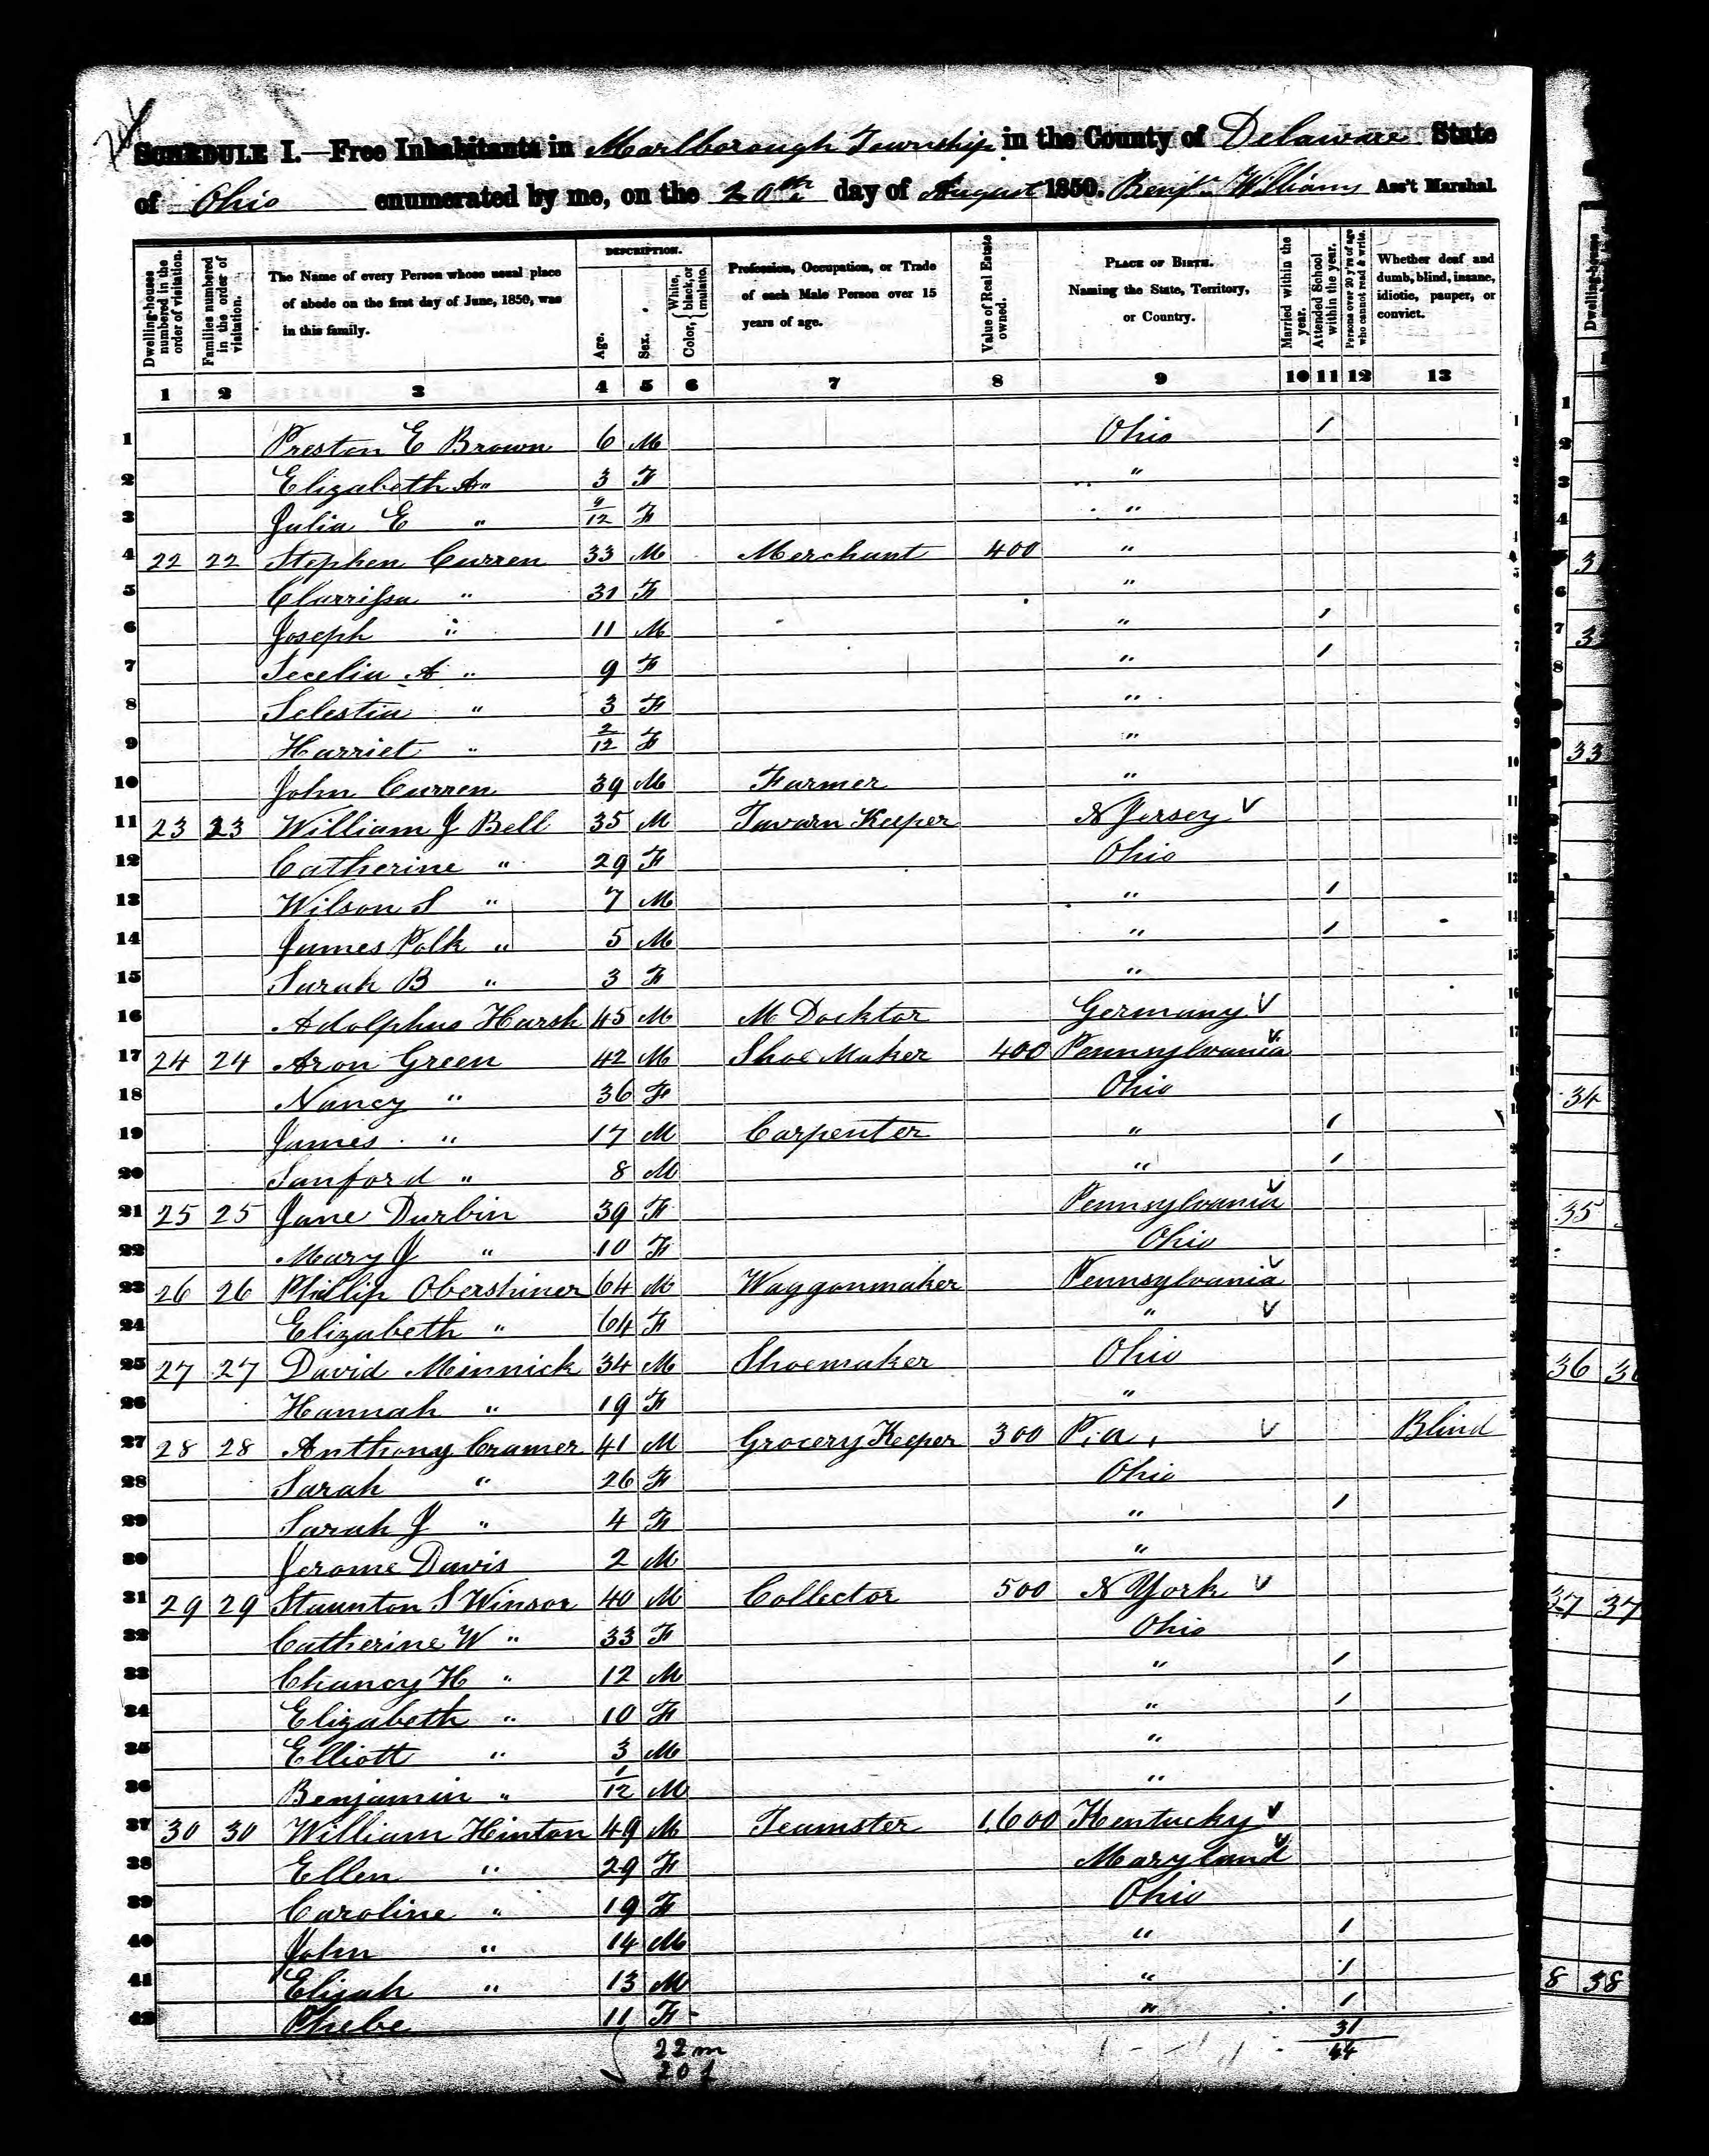 SCHEDULE I.—Free Inhabitants in Marlborough Township in the County of Delaware State
of Ohio enumerated by me, on the 20th day of August 1850. Benj'n Williams Ass't Marshal.
Dwelling-houses numbered in the order of visitation.
Families numbered in the order of visitation.
The Name of every Person whose usual place of abode on the first day of June, 1850, was in this family.
DESCRIPTION.
Age.
Sex.
Color, { White, black, or mulatto.
Profession, Occupation, or Trade of each Male Person over 15 years of age.
Value of Real Estate owned.
PLACE OF BIRTH. Naming the State, Territory, or Country.
Married within the year.
Attended School within the year.
Persons over 20 y'rs of age who cannot read & write.
Whether deaf and dumb, blind, insane, idiotic, pauper, or convict.
1 2 3 4 5 6 7 8 9 10 11 12 13
1 Preston E Brown 6 M Ohio 1
2 Elizabeth A " 3 F "
3 Julia E " 9/12 F "
4 22 22 Stephen Curren 33 M Merchant 400 "
5 Clarrissa " 31 F "
6 Joseph " 11 M " 1
7 Secelia A " 9 F " 1
8 Selestia " 3 F "
9 Harriet " 2/12 F "
10 John Curren 39 M Farmer "
11 23 23 William J Bell 35 M Tavarn Keeper N Jersey V
12 Catherine " 29 F Ohio
13 Wilson S " 7 M " 1
14 James Polk " 5 M " 1
15 Sarah B " 3 F "
16 Adolphus Harsh 45 M M Docktor Germany V
17 24 24 Aron Green 42 M Shoe Maker 400 Pennsylvania V
18 Nancy " 36 F Ohio
19 James " 17 M Carpenter " 1
20 Sanford " 8 M " 1
21 25 25 Jane Durbin 39 F Pennsylvania V
22 Mary J " 10 F Ohio
23 26 26 Phillip Obershiner 64 M Waggonmaker Pennsylvania V
24 Elizabeth " 64 F " V
25 27 27 David Minnick 34 M Shoemaker Ohio
26 Hannah " 19 F "
27 28 28 Anthony Cramer 41 M Grocery Keeper 300 P.a. V Blind
28 Sarah " 26 F Ohio
29 Sarah J " 4 F " 1
30 Jerome Davis 2 M "
31 29 29 Staunton S Winsor 40 M Collector 500 N York V
32 Catherine W " 33 F Ohio
33 Chancy H " 12 M " 1
34 Elizabeth " 10 F " 1
35 Elliott " 3 M "
36 Benjamin " 1/12 M "
37 30 30 William Hinton 49 M Teamster 1,600 Kentucky V
38 Ellen " 29 F Maryland V
39 Caroline " 19 F Ohio
40 John " 14 M " 1
41 Elijah " 13 M " 1
42 Phebe 11 F " 1
22 m
20 f
31
44